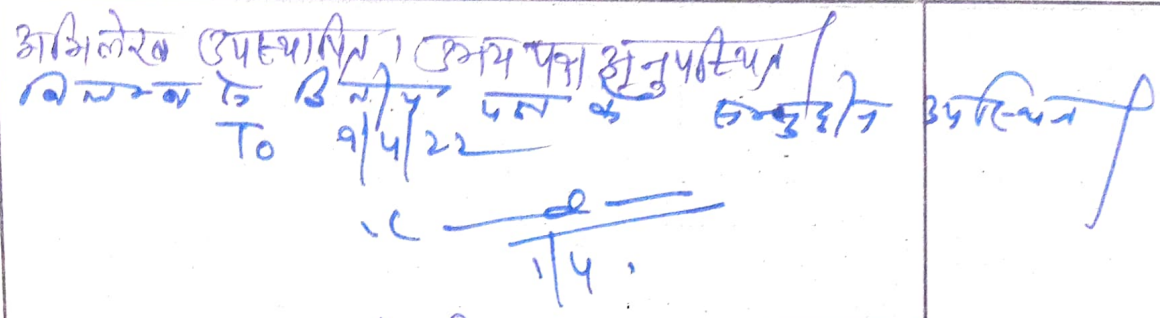 अभिलेख उपस्थापित। उभय पक्ष अनुपस्थित/
विलम्ब से द्वितीय पक्ष के उपस्थित/
To 9/5/22
1/4